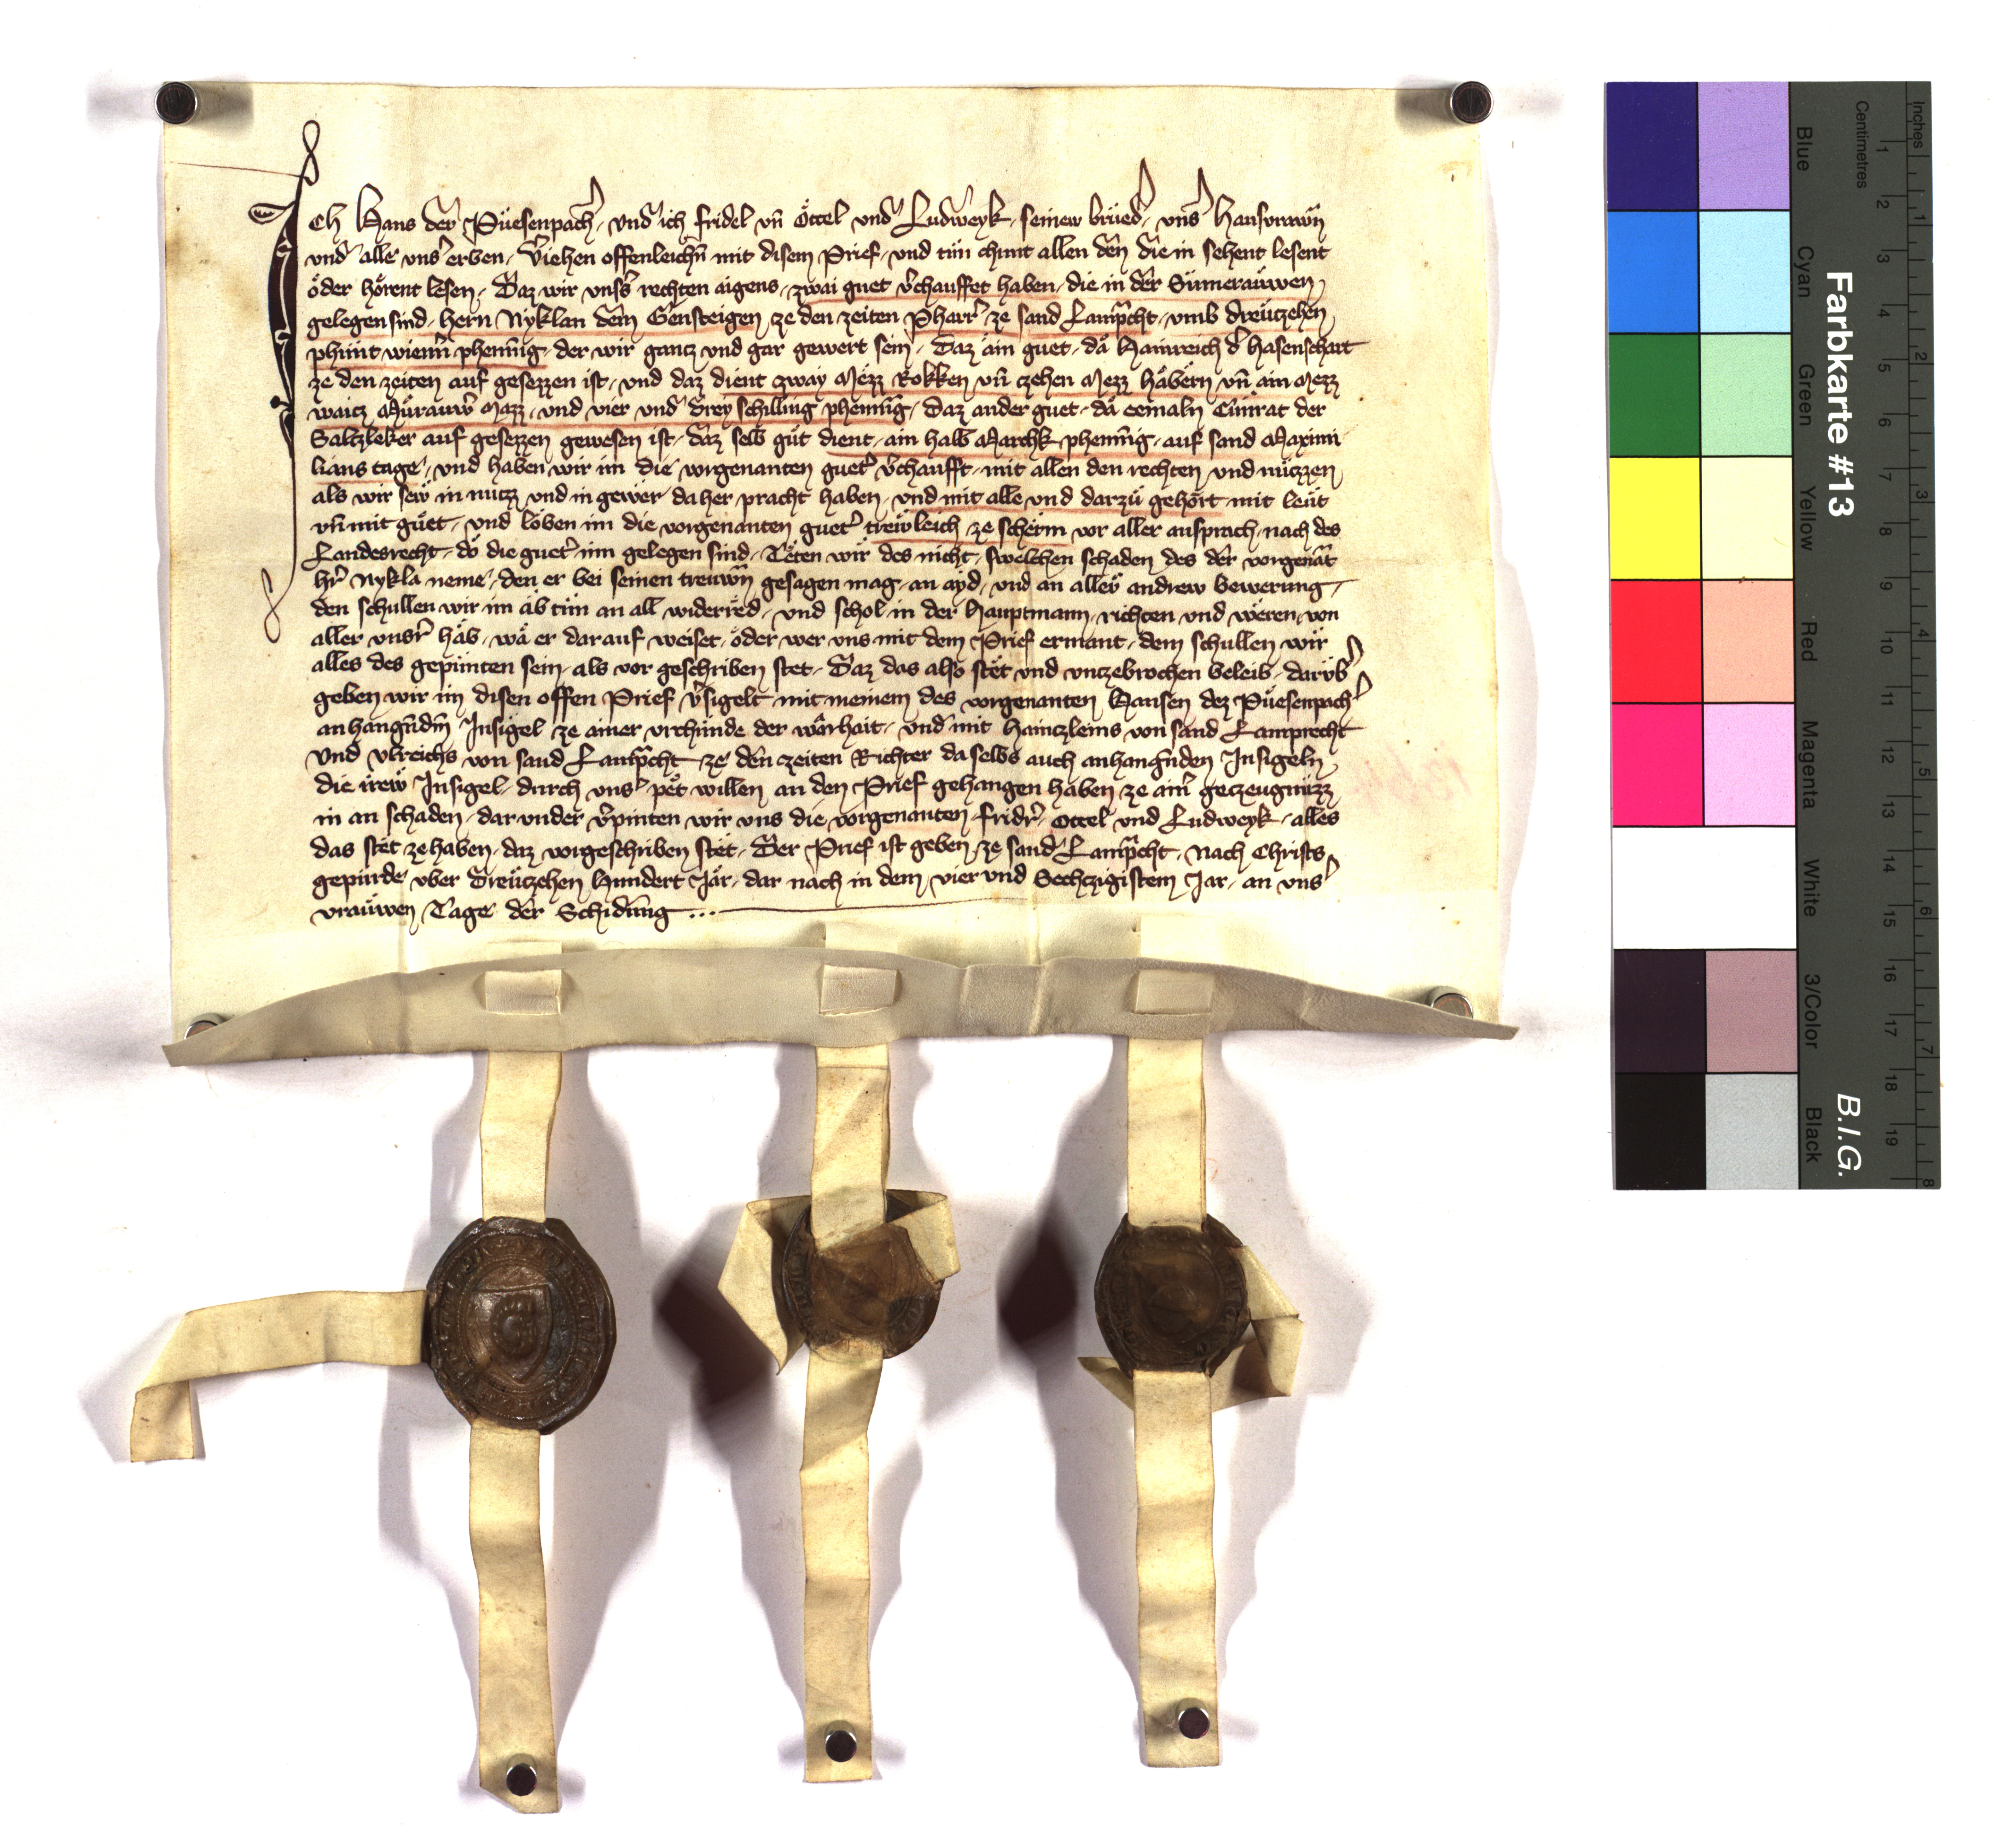 Ich Hans der Püesenpacher, und ich fridel vn̄ Öttel und Ludweyk, seinew brüed', uns' hausvrawn̄
und alle uns' erben, v'iehen offenleichn̄ mit disem Prief, und tün chunt allen den die in sehent lesent
öder hörent lesen, Daz wir unss' rechten aigens, zwai guet v'chauffet haben, die in der Sümerauwen,
gelegen sind, hern Nyklan dem Gensteigen, ze den zeiten Pharr' ze sand Lamp̄cht, umb dreutzehen
phunt wienn' phenn̄ig, der wir gantz und gar gewert sein, Daz ain guet, da Hainreich d' hasenschart
ze den zeiten auf gesezzen ist, und daz dient zway Mezz Rokken vn̄ czehen Mezz häbern vn̄ ain Mezz
waitz Mürauw' Mazz, und vier und drey schilling phenn̄ig, Daz ander guet, da eemaln Cünrat der
Saltzleker auf gesezzen gewesen ist, daz selb güt dient, ain halb Marchk phenn̄ig, auf sand Maximi
lians tage, und haben wir im die vorgenanten guet' v'chaufft, mit allen den rechten und nüczzen,
als wir sew in nutzz und in gewer da her pracht haben, und mit alle und darzü gehört, mit leüt
vn̄ mit güet, und löben im die vorgenanten guet' trewleich ze scherm vor aller ansprach, nach des
Landesrecht, dö die guet' inn gelegen sind, Teten wir des nicht, swelchen schaden des der vorgenāt
hr' Nykla neme, den er bei seinen treuwn̄ gesagen mag, an ayd, und an allew andrew bewerung,
den schullen wir im ab tün an all widerred, und schol in der Hauptmann, richten und weren, von
aller unsr' häb, wa er darauf weiset, öder wer uns mit dem Prief ermant, dem schullen wir
alles des gepunten sein, als vor geschriben stet, Daz das also stet und unzebrochen beleib, darüb'
geben wir im disen offen Prief v'sigelt mit meinem des vorgenanten Hansen dez Püesenpach'
anhangūdm̄ Insigel, ze ainer urchunde der warhait, und mit Haintzleins von sand Lamprecht
Und Ulreichs von sand Lamp̄cht, ze den zeiten Richter daselbs auch anhangn̄den Insigeln,
die irew Insigel, durch uns' pet willen an den Prief gehangen haben ze ain' geczeugnüzz
in an schaden, dar under v'pinten wir uns die vorgenanten fridr', Ottel und Ludweyk, alles
das stet ze haben, daz vorgeschriben stet, Der Prief ist geben, ze sand Lamp̄cht, nach Christs,
gepurde uber dreutzehen Hundert Jar, dar nach in dem, vier und Sechczigistem Jar, an uns'
vrauwen Tage der Schidung ...
Farbkarte #13
B.I.G.
Inches
Centimetres
Blue
Cyan
Green
Yellow
Red
Magenta
White
3/Color
Black
1 2 3 4 5 6 7 8 9 10 11 12 13 14 15 16 17 18 19
1 2 3 4 5 6 7 8